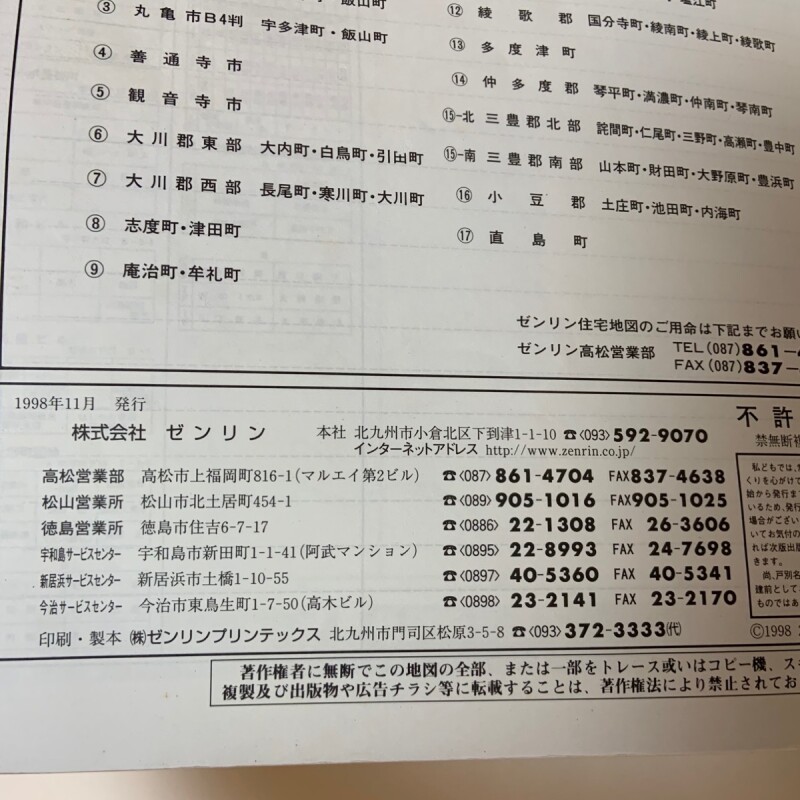 飯山町
③ 丸亀市B4判 宇多津町・飯山町
④ 善通寺市
⑤ 観音寺市
⑥ 大川郡東部 大内町・白鳥町・引田町
⑦ 大川郡西部 長尾町・寒川町・大川町
⑧ 志度町・津田町
⑨ 庵治町・牟礼町
⑫ 綾歌郡 国分寺町・綾南町・綾上町・綾歌町
⑬ 多度津町
⑭ 仲多度郡 琴平町・満濃町・仲南町・琴南町
⑮-北 三豊郡北部 詫間町・仁尾町・三野町・高瀬町・豊中町
⑮-南 三豊郡南部 山本町・財田町・大野原町・豊浜町
⑯ 小豆郡 土庄町・池田町・内海町
⑰ 直島町
ゼンリン住宅地図のご用命は下記までお願い
ゼンリン高松営業部 TEL(087)861-4
FAX(087)837-
1998年11月 発行
株式会社 ゼンリン 本社 北九州市小倉北区下到津1-1-10 ☎〈093〉592-9070
インターネットアドレス http://www.zenrin.co.jp/
高松営業部 高松市上福岡町816-1(マルエイ第2ビル) ☎〈087〉861-4704 FAX837-4638
松山営業所 松山市北土居町454-1 ☎〈089〉905-1016 FAX905-1025
徳島営業所 徳島市住吉6-7-17 ☎〈0886〉22-1308 FAX 26-3606
宇和島サービスセンター 宇和島市新田町1-1-41(阿武マンション) ☎〈0895〉22-8993 FAX 24-7698
新居浜サービスセンター 新居浜市土橋1-10-55 ☎〈0897〉40-5360 FAX 40-5341
今治サービスセンター 今治市東鳥生町1-7-50(高木ビル) ☎〈0898〉23-2141 FAX 23-2170
印刷・製本 ㈱ゼンリンプリンテックス 北九州市門司区松原3-5-8 ☎〈093〉372-3333㈹
不許
禁無断複
私どもでは、
くりを心がけて
始から発行ま
いるため、発行
場合がござい
いてお気付の
れば次版出版
きます。
尚、戸別名
建前として
ものではあ
©1998
著作権者に無断でこの地図の全部、または一部をトレース或いはコピー機、ス
複製及び出版物や広告チラシ等に転載することは、著作権法により禁止されてお